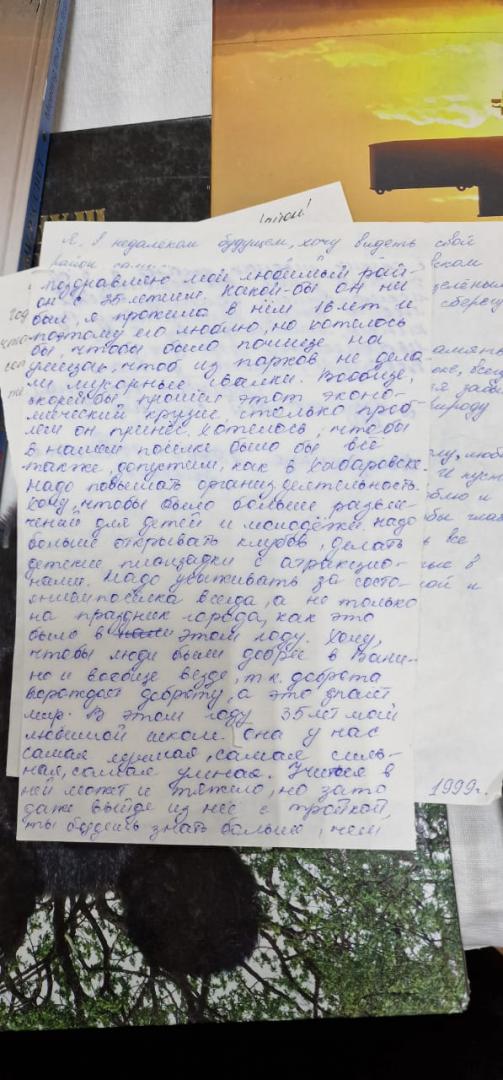 Я, в недалеком будущем, хочу видеть свой
район
поздравляю мой любимый рай-
он с 25-летием. Какой-бы он ни
был, я прожила в нём 16 лет и
поэтому его люблю, но хотелось
бы, чтобы было почище на
улицах, чтоб из парков не дела
ли мусорные свалки. Вообще,
скорей бы прошёл этот эконо-
мический кризис, столько проб-
лем он принёс. Хотелось, чтобы
в нашем посёлке было бы всё
также, допустим, как в Хабаровске.
Надо повышать организ. деятельность.
Хочу, чтобы было больше развле-
чений для детей и молодёжи, надо
больше открывать клубов, делать
детские площадки с атракцио-
нами. Надо ухаживать за состо-
янием посёлка всегда, а не только
на праздник города, как это
было в этом году. Хочу,
чтобы люди были добрее в Вани-
но и вообще везде, т.к. доброта
порождает доброту, а это делает
мир. В этом году 35 лет моей
любимой школе она у нас
самая лучшая, самая силь-
ная, самая умная. Учиться в
ней может и тяжело, но зато
даже выйдя из неё с тройкой,
ты будешь знать больше, чем
сберегу
природу
все
1999г.